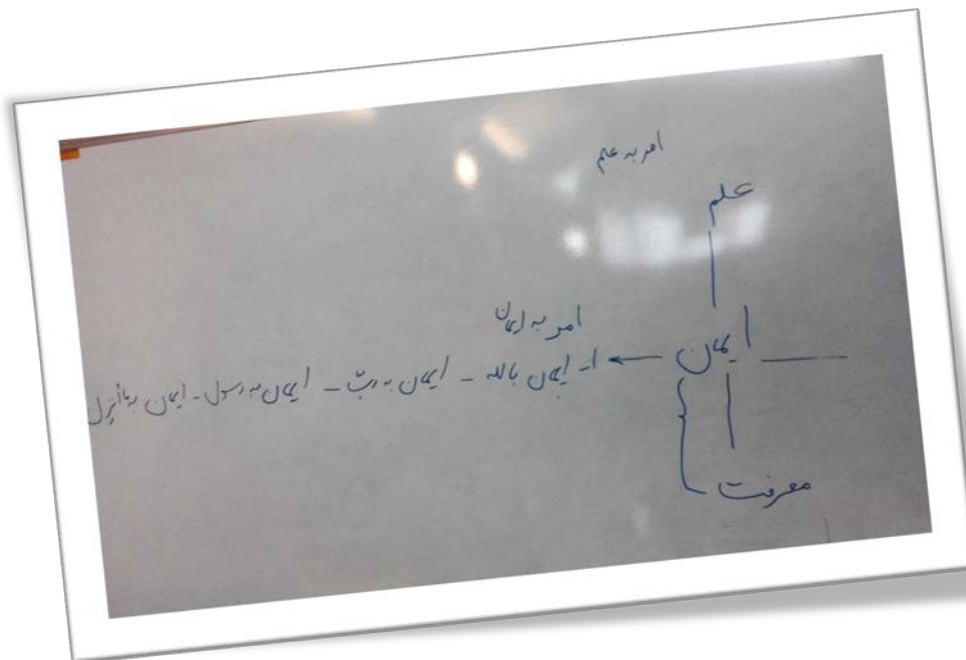 امر به علم
علم
امر به ایمان
ایمان ← ۱- ایمان بالله - ایمان به رب - ایمان به رسول - ایمان بما أنزل
معرفت